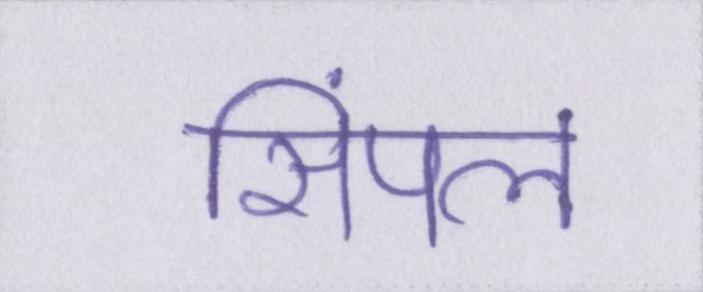 सिंपल